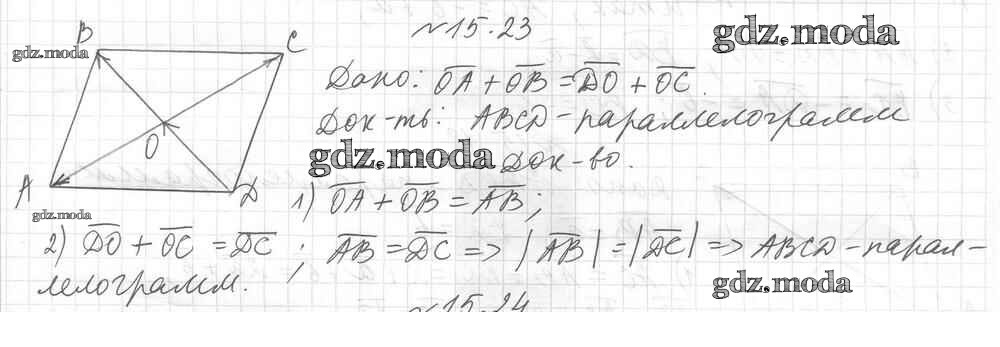 №15.23
B
C
gdz.moda
gdz.moda
Дано: O̅A̅ + O̅B̅ = D̅O̅ + O̅C̅.
Док-ть: ABCD - параллелограмм
O
gdz.moda
Док-во.
A
D
1) O̅A̅ + O̅B̅ = A̅B̅;
gdz.moda
2) D̅O̅ + O̅C̅ = D̅C̅; A̅B̅ = D̅C̅ => |A̅B̅| = |D̅C̅| => ABCD - парал-
лелограмм.
gdz.moda
№15.24